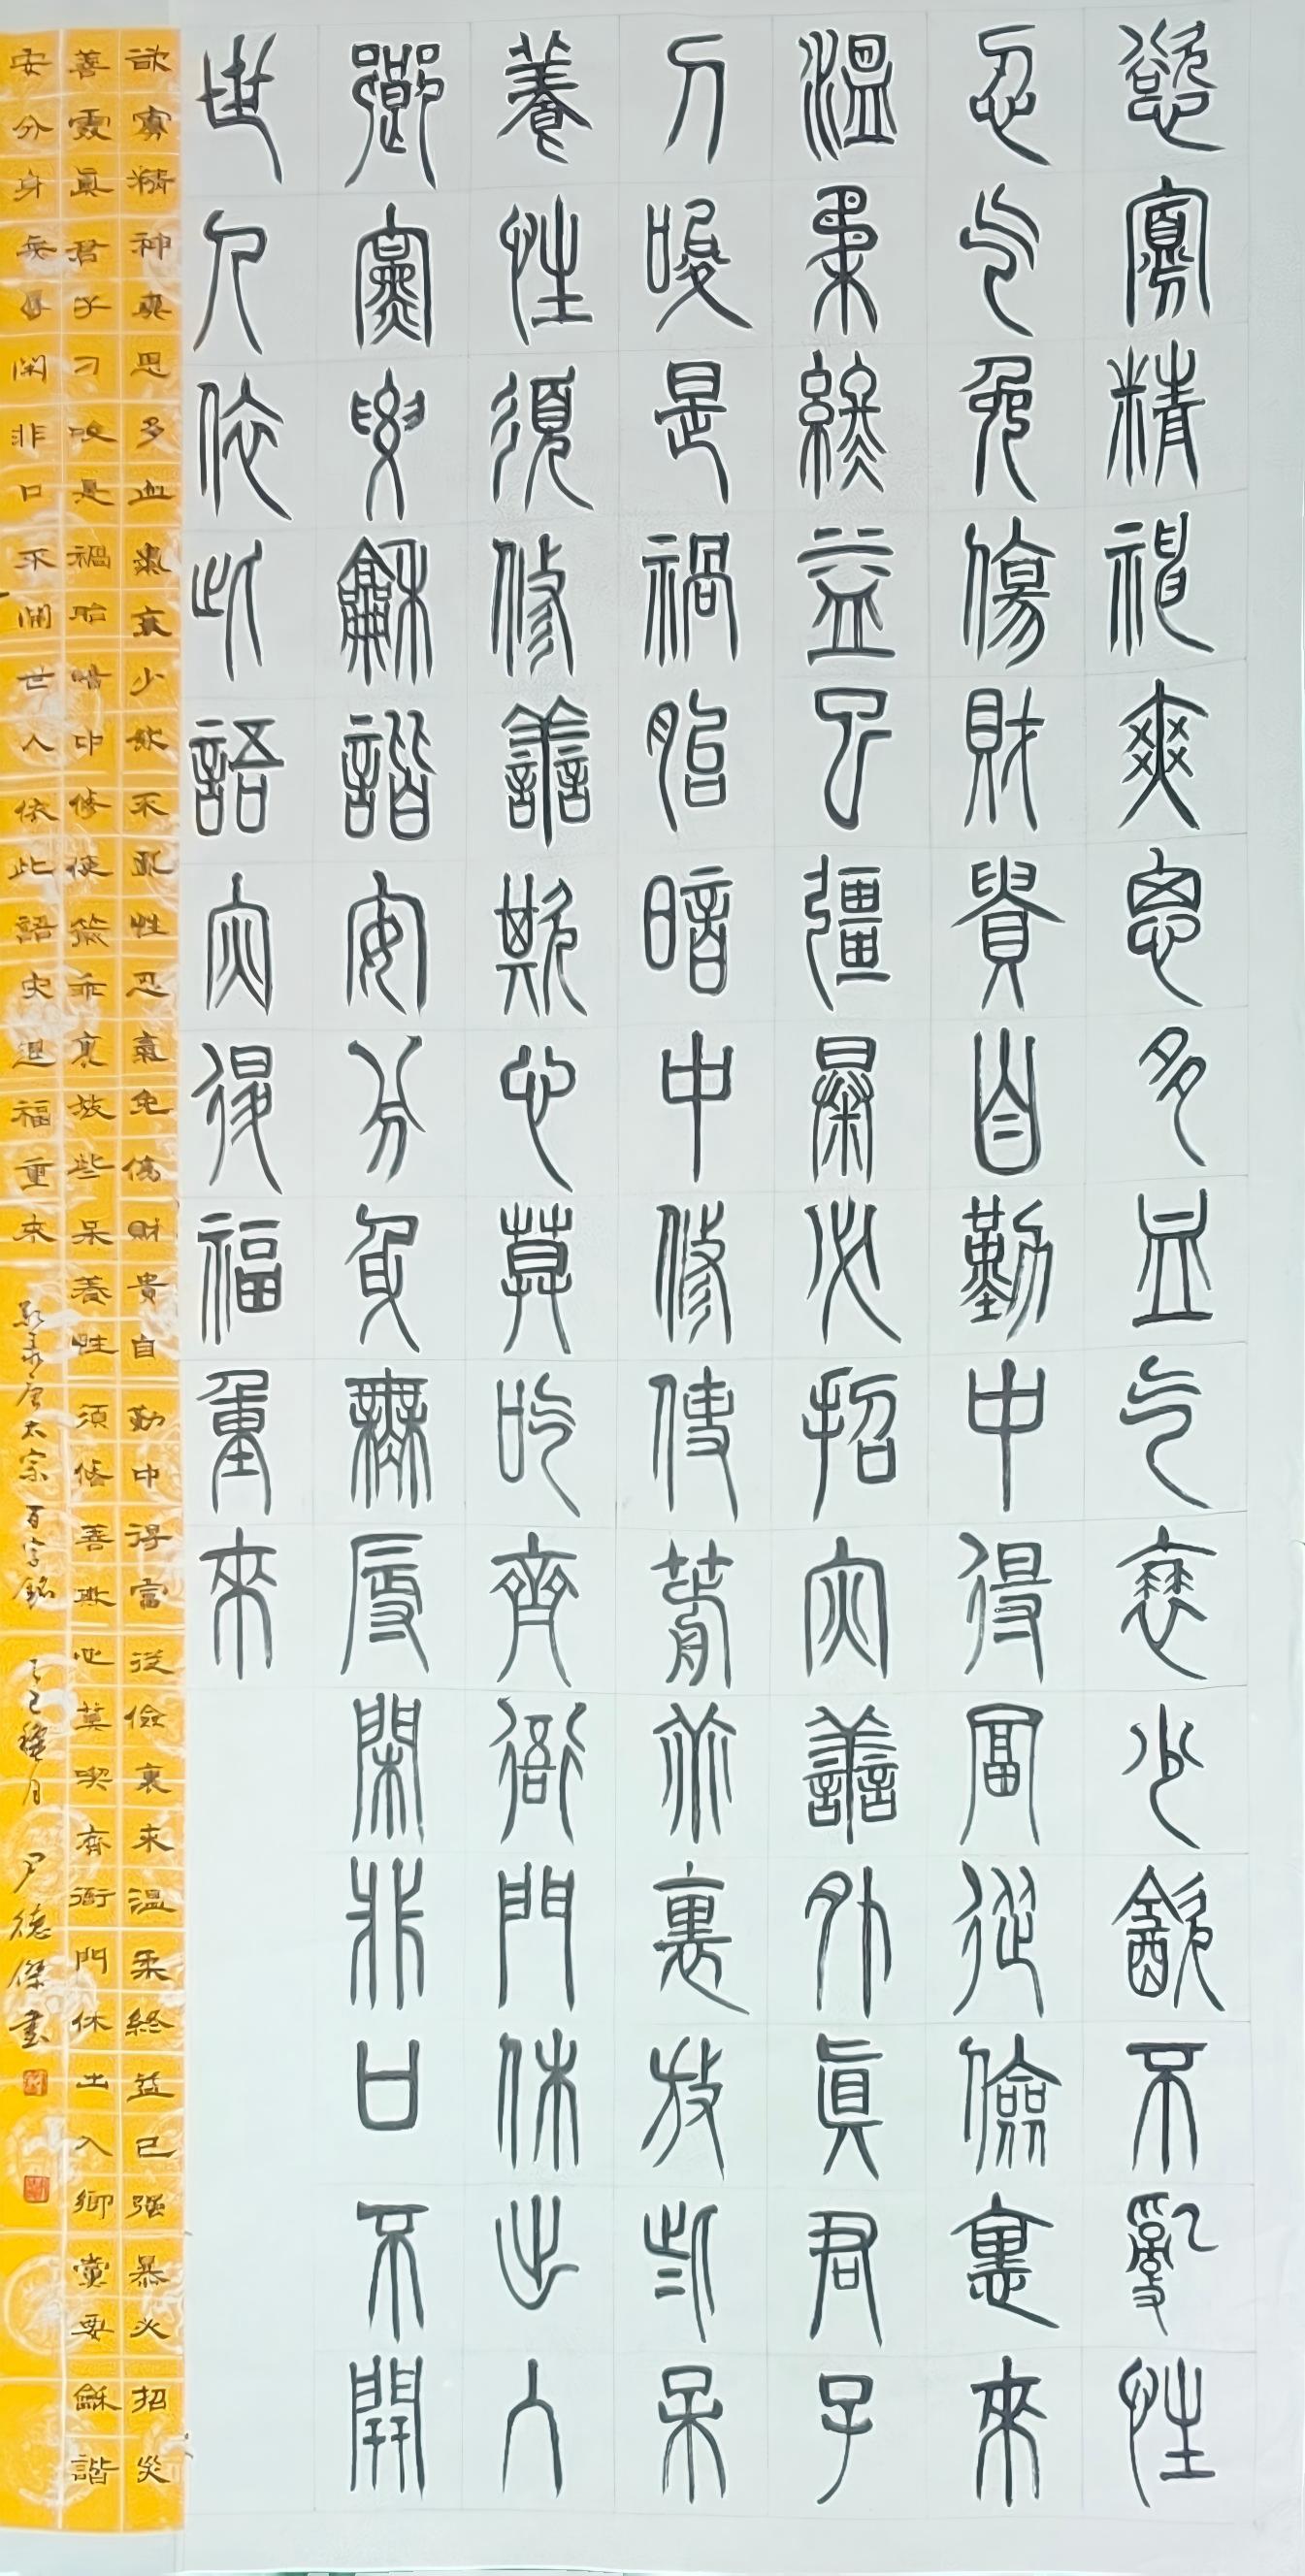 慾寡精神爽思多血气衰少飲不亂性
忍气免傷財貴自勤中得富從儉裏來
溫柔終益己彊暴必招災善処真君子
刁唆是禍胎暗中修使箭乖裏放些呆
養性須修善欺心莫吃齊衙門休出入
鄉黨要龢諧安分身無辱閑非口不開
世人依此語災退福重來
欲寡精神爽思多血氣衰少飲不亂性忍氣免傷財貴自勤中得富從儉裏來溫柔終益己强暴必招災
善處真君子刁唆是禍胎暗中修使箭乖裏放些呆養性須修善欺心莫喫齊衙門休出入鄉黨要龢諧
安分身無辱閑非口不開世人依此語災退福重來 敬录唐太宗百字銘 乙巳穐月 尹德傑書